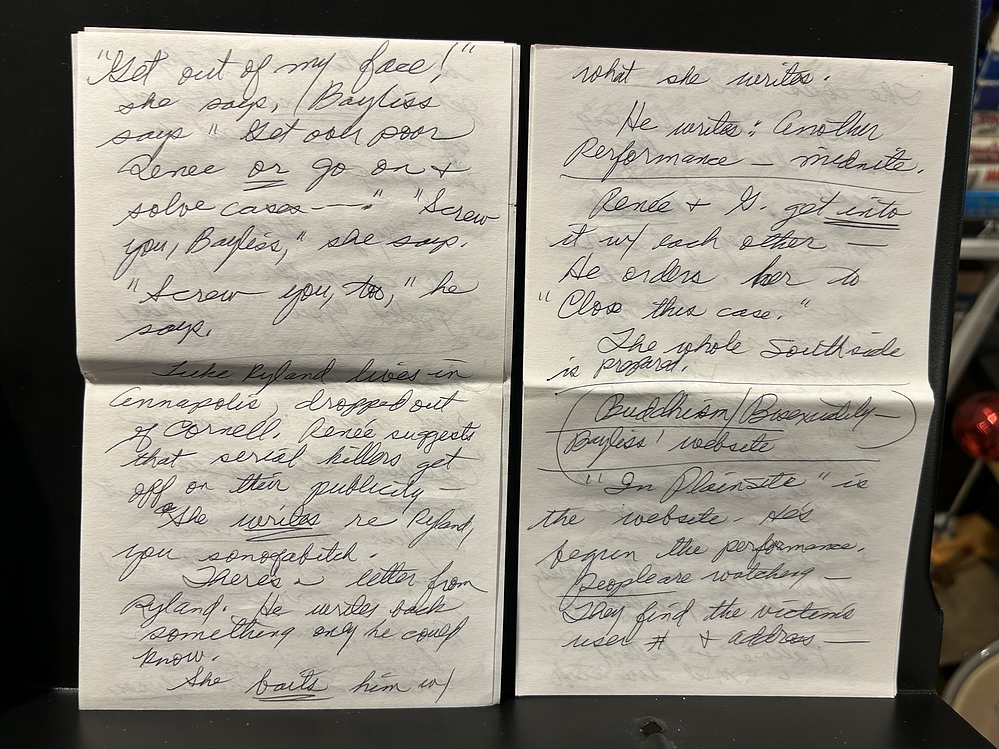 "Get out of my face!"
she says, Bayliss
says "Get ooh poor
Renee or go on +
solve cases ---" "Screw
you, Bayliss," she says.
"Screw you, too," he
says.
Luke Ryland lives in
Annapolis, dropped out
of Cornell. Renée suggests
that serial killers get
off on their publicity —
She writes re Ryland,
you sonofabitch.
There's a letter from
Ryland. He writes back
something only he could
know.
She baits him w/
what she writes.
He writes: Another
Performance — midnite.
Renée + G. get into
it w/ each other —
He orders her to
"Close this case."
The whole Southside
is prepared.
Buddhism/Bisexuality —
Bayliss' website
"In Plainsite" is
the website. He's
begun the performance.
People are watching —
They find the victim's
user # + address —